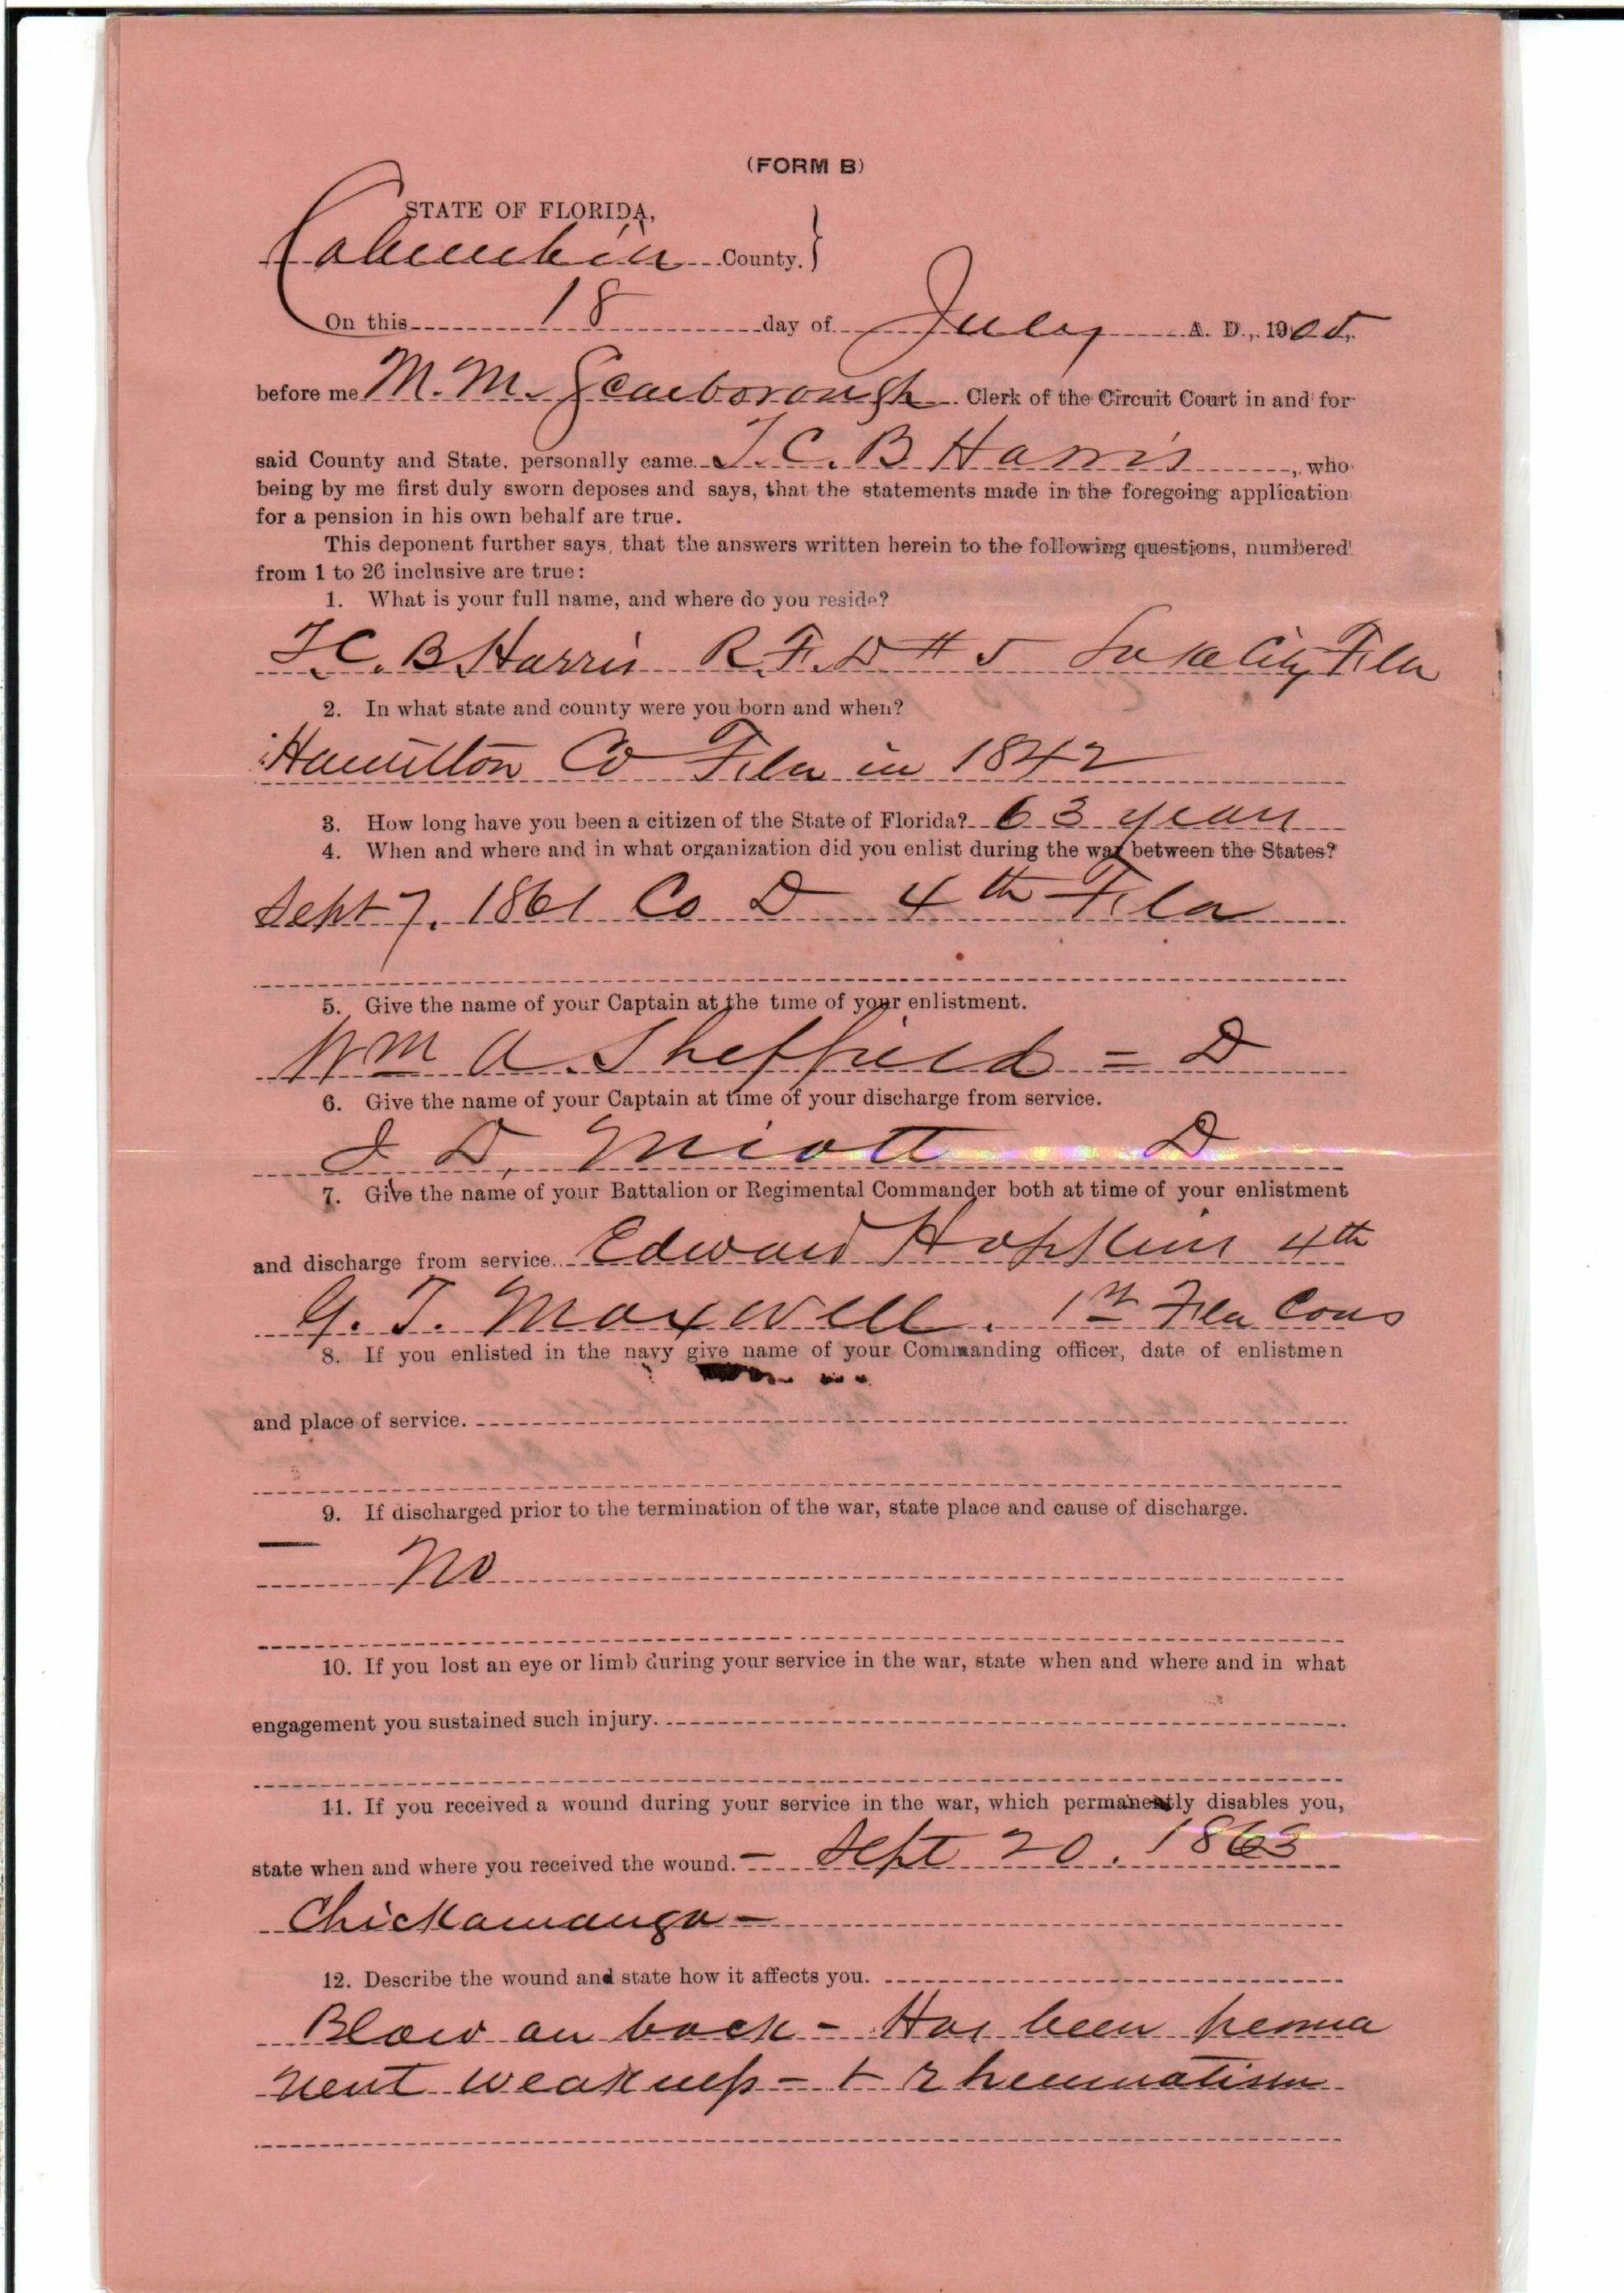 (FORM B)
STATE OF FLORIDA,
Columbia County.
On this 18 day of July A. D., 1905,
before me M. M. Scarborough Clerk of the Circuit Court in and for
said County and State. personally came T. C. B Harris, who
being by me first duly sworn deposes and says, that the statements made in the foregoing application
for a pension in his own behalf are true.
This deponent further says, that the answers written herein to the following questions, numbered
from 1 to 26 inclusive are true:
1. What is your full name, and where do you reside?
T. C. B Harris R. F. D # 5 Lake City Fla
2. In what state and county were you born and when?
Hamilton Co Fla in 1842
3. How long have you been a citizen of the State of Florida? 63 years
4. When and where and in what organization did you enlist during the war between the States?
Sept 7. 1861 Co D 4th Fla
5. Give the name of your Captain at the time of your enlistment.
Wm A. Sheffield = D
6. Give the name of your Captain at time of your discharge from service.
D. D
7. Give the name of your Battalion or Regimental Commander both at time of your enlistment
and discharge from service. Edward Hopkins 4th
G. T. Maxwell. 1st Fla Cons
8. If you enlisted in the navy give name of your Commanding officer, date of enlistmen
and place of service.
9. If discharged prior to the termination of the war, state place and cause of discharge.
No
10. If you lost an eye or limb during your service in the war, state when and where and in what
engagement you sustained such injury.
11. If you received a wound during your service in the war, which permanently disables you,
state when and where you received the wound. - Sept 20. 1863
Chickamauga -
12. Describe the wound and state how it affects you.
Blow on back - Has been perma
nent weakness - + rheumatism